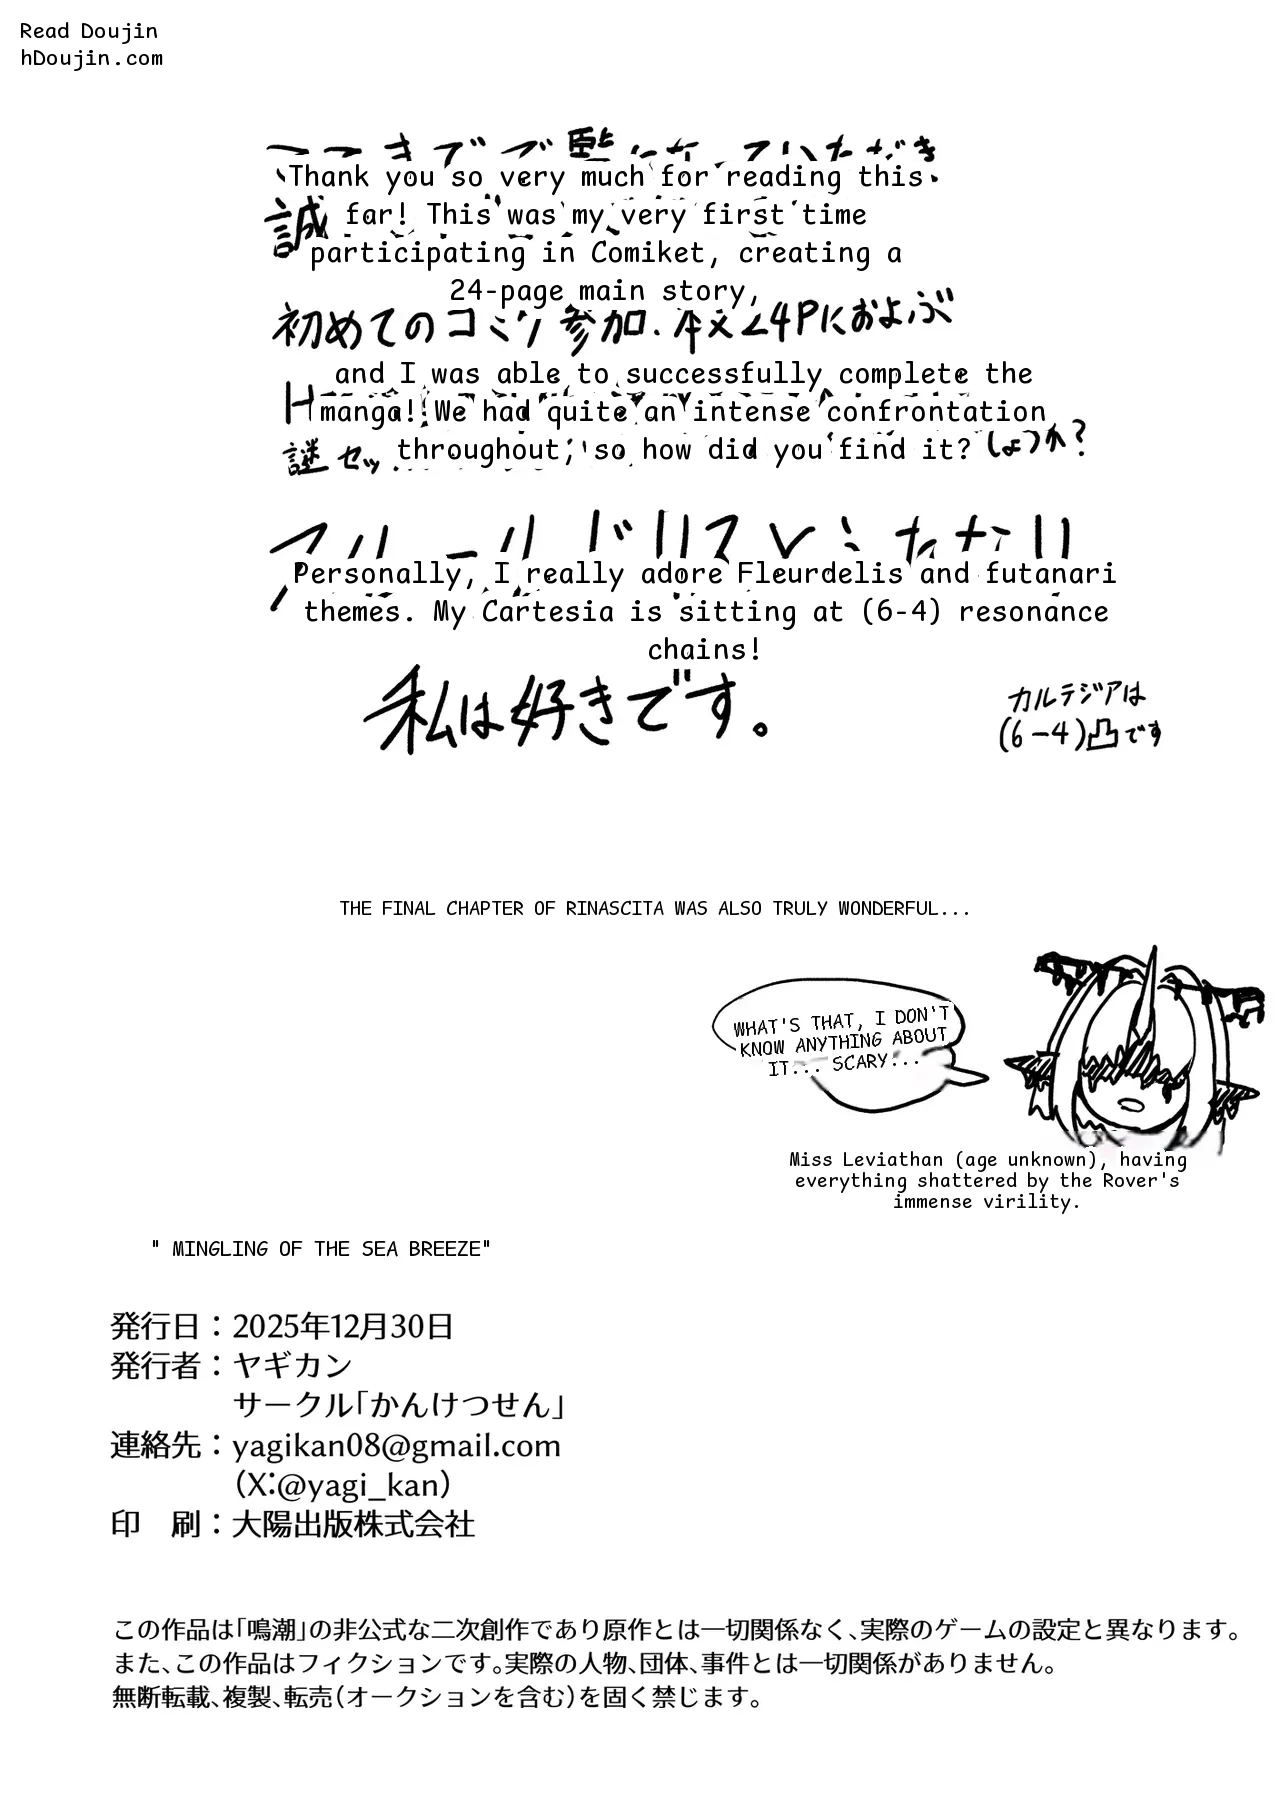 Read Doujin
hDoujin.com
Thank you so very much for reading this
誠 far! This was my very first time
participating in Comiket, creating a
24-page main story,
初めてのコミケ参加、本文24Pにおよぶ
and I was able to successfully complete the
H manga! We had quite an intense confrontation
謎セッ throughout, so how did you find it? しょうか?
Personally, I really adore Fleurdelis and futanari
themes. My Cartesia is sitting at (6-4) resonance
chains!
私は好きです。
カルテジアは
(6-4)凸です
THE FINAL CHAPTER OF RINASCITA WAS ALSO TRULY WONDERFUL...
WHAT'S THAT, I DON'T
KNOW ANYTHING ABOUT
IT... SCARY...
Miss Leviathan (age unknown), having
everything shattered by the Rover's
immense virility.
" MINGLING OF THE SEA BREEZE"
発行日：2025年12月30日
発行者：ヤギカン
サークル｢かんけつせん｣
連絡先：yagikan08@gmail.com
（X:@yagi_kan）
印　刷：大陽出版株式会社
この作品は｢鳴潮｣の非公式な二次創作であり原作とは一切関係なく､実際のゲームの設定と異なります｡
また､この作品はフィクションです｡実際の人物､団体､事件とは一切関係がありません｡
無断転載､複製､転売（オークションを含む）を固く禁じます｡